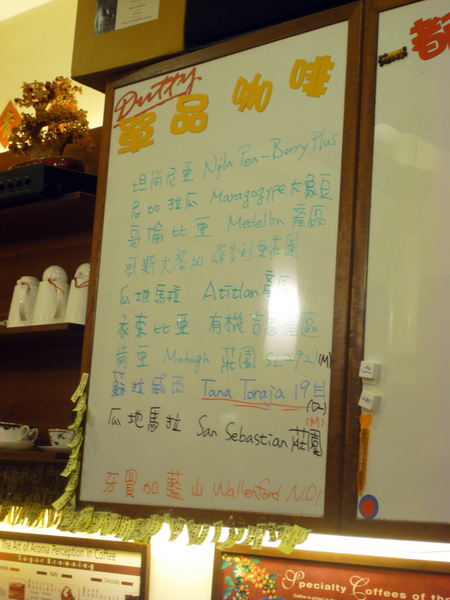 Dutty
單品咖啡
坦尚尼亞 Njila Pea-Berry Plus
尼加拉瓜 Maragogype 大象豆
哥倫比亞 Medellin 產區
哥斯大黎加 莊園
瓜地馬拉 Atitlan 產區
衣索比亞 有機 產區
肯亞 Muhugh 莊園 SL292 (M)
蘇拉威西 Tana Toraja 19目
(M)
瓜地馬拉 San Sebastian 莊園
牙買加藍山 Wallenford NO1
The Art of Aroma Perception in Coffee
Sugar Browning
Specialty Coffees of the